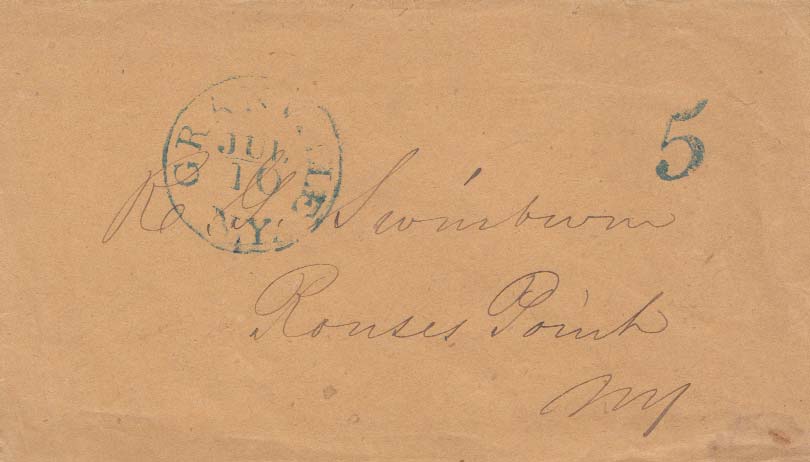 GRANVILLE
JUL
10
N.Y.
5
R G. Swinburn
Rouses Point
NY